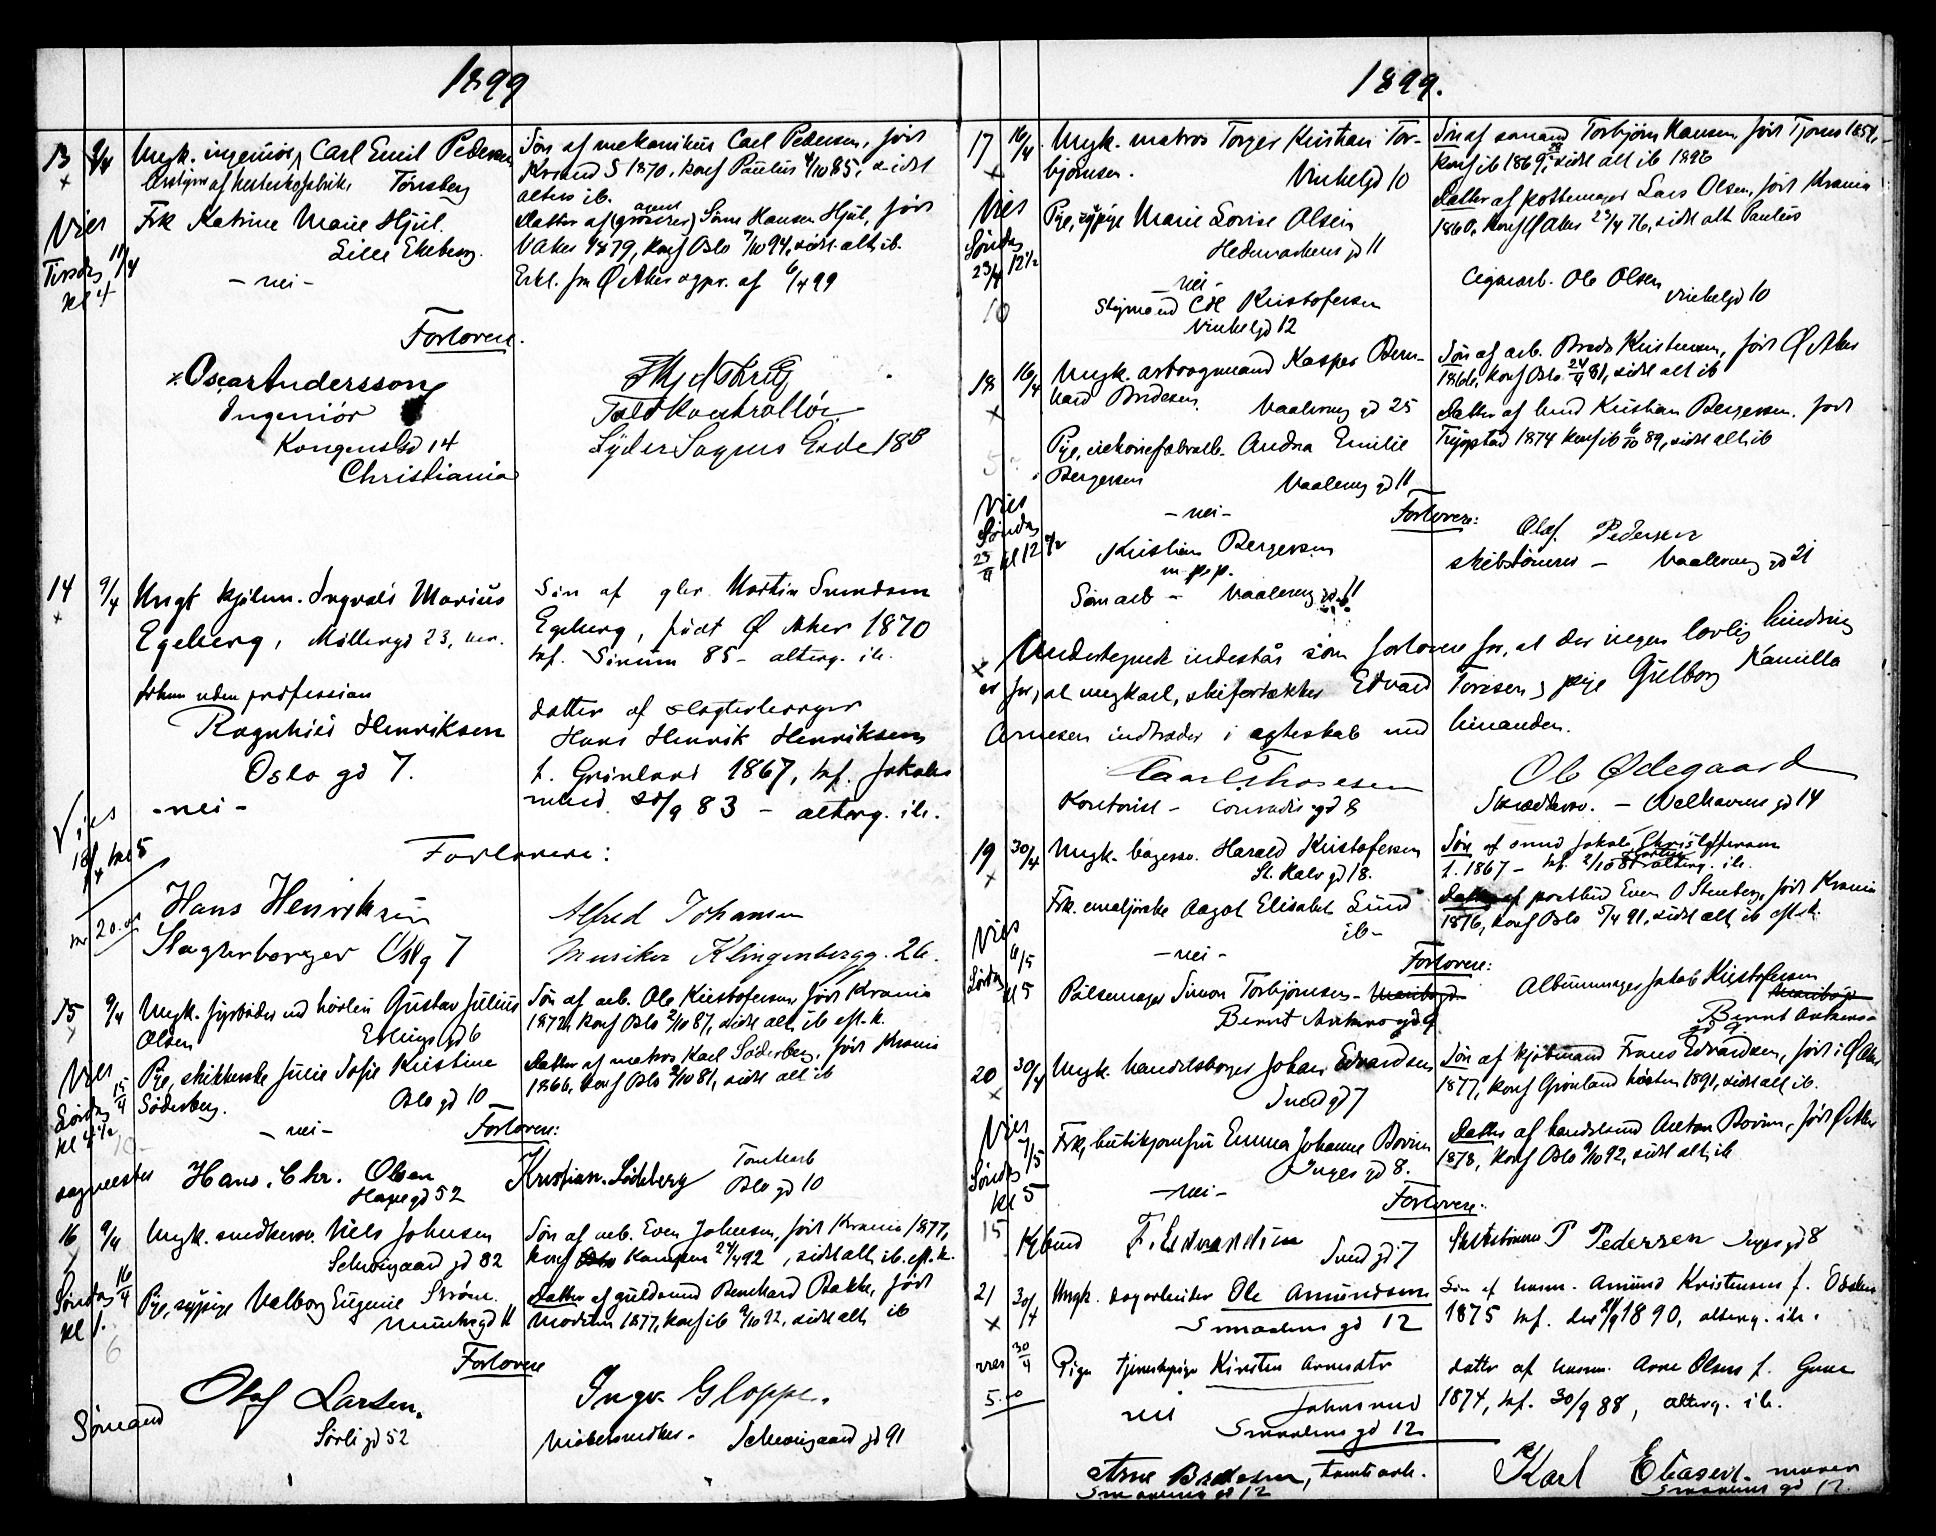 1899
13 9/4 Ungk. ingeniør, Carl Emil Pedersen
Tønsberg
Søn af mekanikus Carl Pedersen, født
Krsand S 1870, konf Paulus 4/10 85, sidst
alters ib.
Vies
Tirsdag 11/4
kl 4
Frk Katrine Marie Hjul.
Lille Ekeberg.
Datter af Søren Hansen Hjul, født
V Aker 1879, konf Oslo 7/10 94, sidst alt. ib.
- nei -
Erkl. fra Ø Aker ogpr. af 6/4 99
Forlovere.
Oscar Andersson
Ingeniör
Kongens Gd 14
Christiania
Toldkontrollør
Lyder Sagens Gade 18
14 9/4 Ungk kjølm. Ingvald Marius
Egeberg, Møllergd 23,
Søn af Martin
Egeberg, født Ø Aker 1870
kf. 85 - alterg. ib.
frkn uden profession
Ragnhild Henriksen
Oslo gd 7.
datter af slagterborger
Hans Henrik Henriksen
f. Grønland 1867, kf. Jakobs
83 - alterg. ib.
- nei -
Vies
kl 5
Forlovere:
Hans Henriksen
Slagterborger Oslg 7
Alfred Johansen
Musiker Klingenbergg. 26.
15 9/4 Ungk. fyrbøder Gustav Julius
Olsen
Erlings gd 6
Søn af arb. Ole Kristofersen, født Krania
1872, konf Oslo 2/10 87, sidst alt. ib eft. k.
Vies
15/4
Lørdag
kl 4 1/2
Pge, Julie Sofie Kristine
Søderberg.
Oslo gd 10
Datter af matros Karl Søderberg, født Krania
1866, konf Oslo 2/10 81, sidst alt ib
- nei -
Forlovere:
Hans. Chr. Olsen
Hagegd 52
Kristian. Söderberg
Tomtearb
Oslo gd 10
16 9/4 Ungk. snedkersv. Niels Johnsen
Schweigaard gd 82
Søn af arb. Even Johnsen, født Krania 1877,
konf Kampen 24/4 92, sidst alt. ib. eft. k.
Søndag 16/4
kl 1.
6
Pge, sypige Valborg Eugenie Strøm.
Munkegd 11
Datter af guldsmed Bernhard Bakke, født
Modum 1877, konf ib 9/10 92, sidst alt. ib
Forlovere
Sømand
Olaf Larsen.
Sørligd 52
Ingv. Gloppe.
Møbelsnedker. Schweigaard gd 91
1899.
17 16/4 Ungk. matros Torger Kristian Tor-
bjørnsen. Vinkelgd 10
Søn af sømand Torbjørn Hansen, født Tjømø 1854,
konf ib 1869, sidst alt ib 1896
Vies
Søndag
23/4 12 1/2
10
Pge, sypige Marie Lovise Olsen
Hedemarkens gd 11
Datter af pottemager Lars Olsen, født Krania
1860, konf Ø Aker 23/4 76, sidst alt Paulus
- nei -
Kristofersen
Vinkelgd 12
Cigararb. Ole Olsen
Vinkelgd 10
18 16/4 Ungk. Kaspar Bern-
hard Bredesen. Vaalereng gd 25
Søn af arb. Brede Kristensen, født Ø Aker
1866, konf Oslo 24/4 81, sidst alt ib
Pge, Andrea Emilie
Bergersen Vaalereng gd 11
Datter af Kristian Bergersen, født
Trygstad 1874 konf ib 6/10 89, sidst alt ib
Vies
Søndag
23/4 kl 12 1/2
- nei -
Forlovere:
Kristian Bergersen
m.p.p.
Vaalereng gd 11
Olaf Pedersen
skibstømrer - Vaalereng gd 21
Undertegnede indestår som forlovere for, at der ingen lovlig hindring
er for, at ungkarl, skifertækker Edvard Toresen og pige Gulborg Kamilla
Arnesen indtræder i ægteskab med hinanden.
Carl Thoresen
Kontorist - Conradis gd 8
Ole Ødegaard
Skræddersv. - Welhavens gd 14
19 30/4 Ungk. bagersv. Harald Kristofersen
St. Halv gd 18.
Søn af smed Jakob Christoffersen
f. 1867 - kf. 2/10 81 alterg. ib.
Vies 6/5
Lørdag
kl 5
Frk. Aagot Elisabet Lund
ib -
Datter af postbud Even O Stenberg, født Krania
1876, konf Oslo 5/4 91, sidst alt ib eft. k.
- nei -
Forlovere:
Pølsemager Simon Torbjørnsen -
Bernt Ankers gd 9
Albummager Jakob Kristofersen
Bernt Ankers
gd 9
20 30/4 Ungk. handelsborger Johan Edvardsen
Smed gd 7
Søn af kjøbmand Frans Edvardsen, født i Ø Aker
1877, konf Grønland høsten 1891, sidst alt ib.
Vies
7/5
Søndag
kl 5
15
Frk, butikjomfru Emma Johanne Bovim
Inges gd 8.
Datter af handelsmd Anton Bovim, født Ø Aker
1878, konf Oslo 9/10 92, sidst alt. ib
- nei -
Forlovere:
Kjbmd F. Edvardsen
Smed gd 7
Skibstømrer P Pedersen Inges gd 8
21 30/4 Ungk. dagarbeider Ole Amundsen
Smaalens gd 12
Søn af husm. Amund Kristensen f. Odalen
1875 kf. 1890, alterg. ib.
vies 30/4
5.00
Pige tjenestepige Kirsten Arnesdtr
Johnsrud
Smaalens gd 12
nei
datter af husm. Arne Olsen f. Grue
1874, kf. 30/9 88, alterg. ib.
Arne Bredesen, tomtearb.
Smaalens gd 12
Karl Eliasen. murer
Smaalens gd 12.